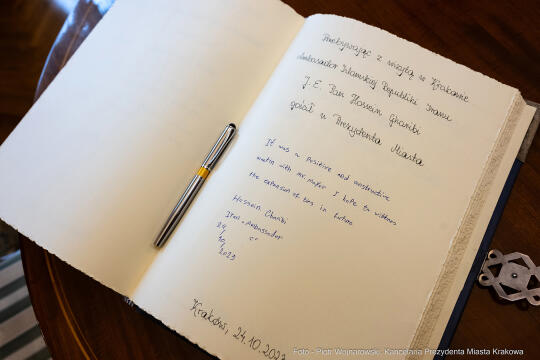 Przebywając z wizytą w Krakowie
Ambasador Islamskiej Republiki Iranu
J.E. Pan Hossein Gharibi
gościł u Prezydenta Miasta
It was a positive and constructive
meetin with mr. mayor I hope to witness
the extension of ties in future
Hossein Gharibi
Iran, Ambassador
24
10
2023
Kraków, 24.10.2023
Foto - Piotr Wojnarowski, Kancelaria Prezydenta Miasta Krakowa